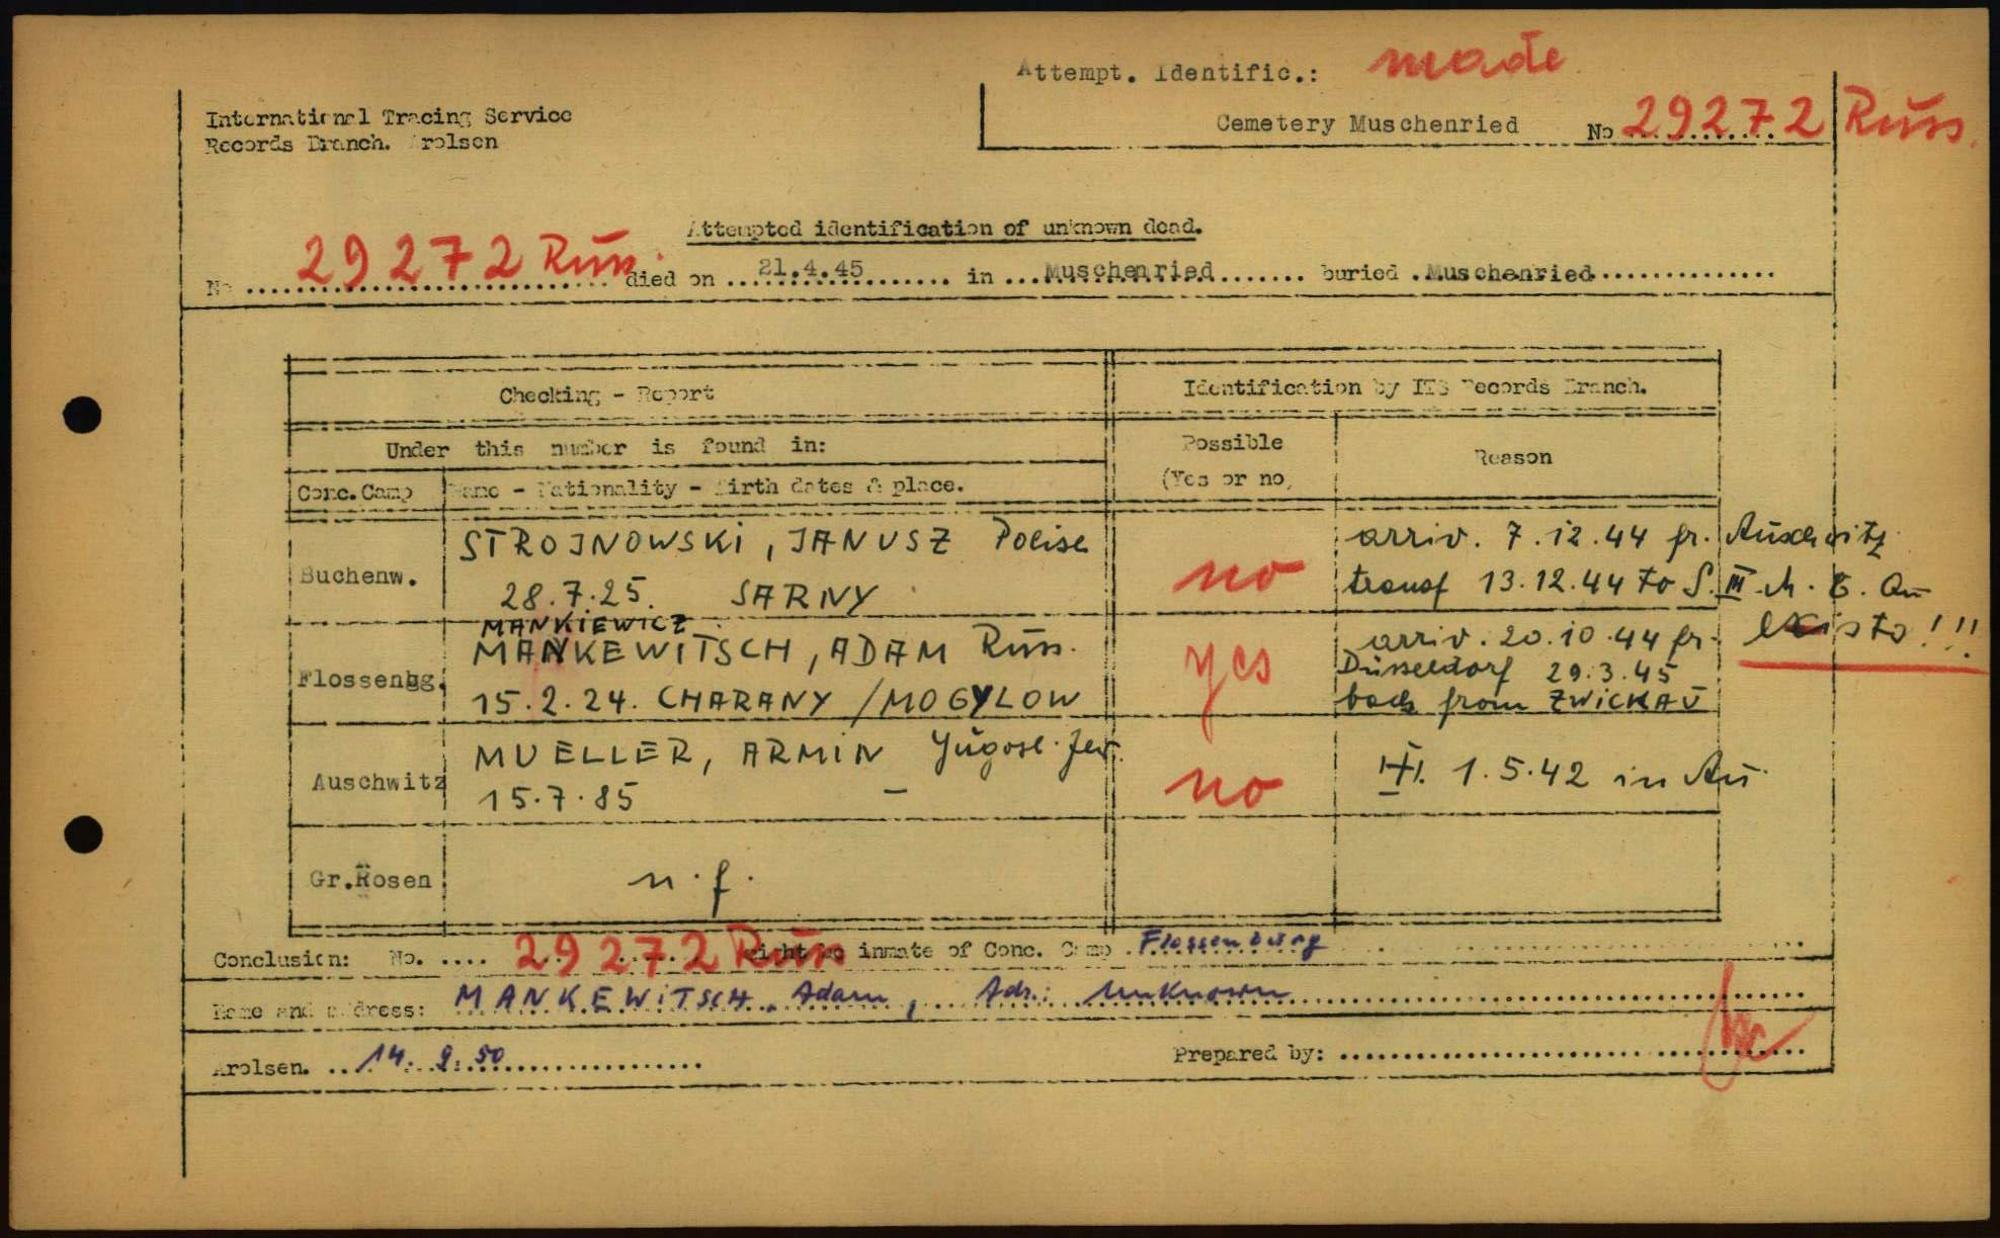 Attempt. Identific.: made
International Tracing Service
Records Branch. Arolsen
Cemetery Muschenried No 29272 Russ.
Attempted identification of unknown dead.
No 29272 Russ. died on 21.4.45 in Muschenried buried Muschenried
Checking - Report
Identification by ITS Records Branch.
Under this number is found in:
Possible
(Yes or no)
Reason
Conc. Camp Name - Nationality - Birth dates & place.
STROJNOWSKI, JANUSZ Polish
arriv. 7.12.44 fr. Auschwitz
Buchenw.
no
28.7.25. SARNY
transf 13.12.44 to S. III
MANKIEWICZ
MANKEWITSCH, ADAM Russ.
arriv. 20.10.44 fr.
existo!!!
Flossenbg.
yes
Düsseldorf 29.3.45
15.2.24. CHARANY / MOGYLOW
back from ZWICKAU
MUELLER, ARMIN Jugosl. Jew.
Auschwitz
no
1.5.42 in Au.
15.7.85 –
Gr.Rosen
n.f.
Conclusion: No. 29272 Russ might be inmate of Conc. Camp Flossenburg
Name and address: MANKEWITSCH, Adam, Adr.: unknown
Arolsen. 14.9.50
Prepared by: